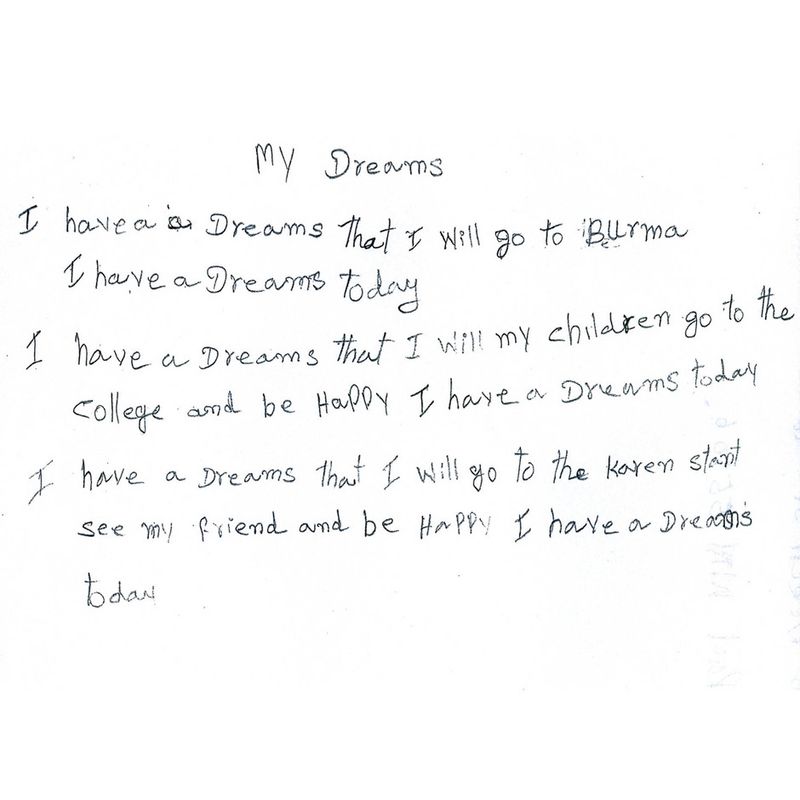 My Dreams
I have a a Dreams that I will go to Burma
I have a Dreams today
I have a Dreams that I will my children go to the
college and be Happy I have a Dreams today
I have a Dreams that I will go to the karen stant
see my friend and be Happy I have a Dreams
today